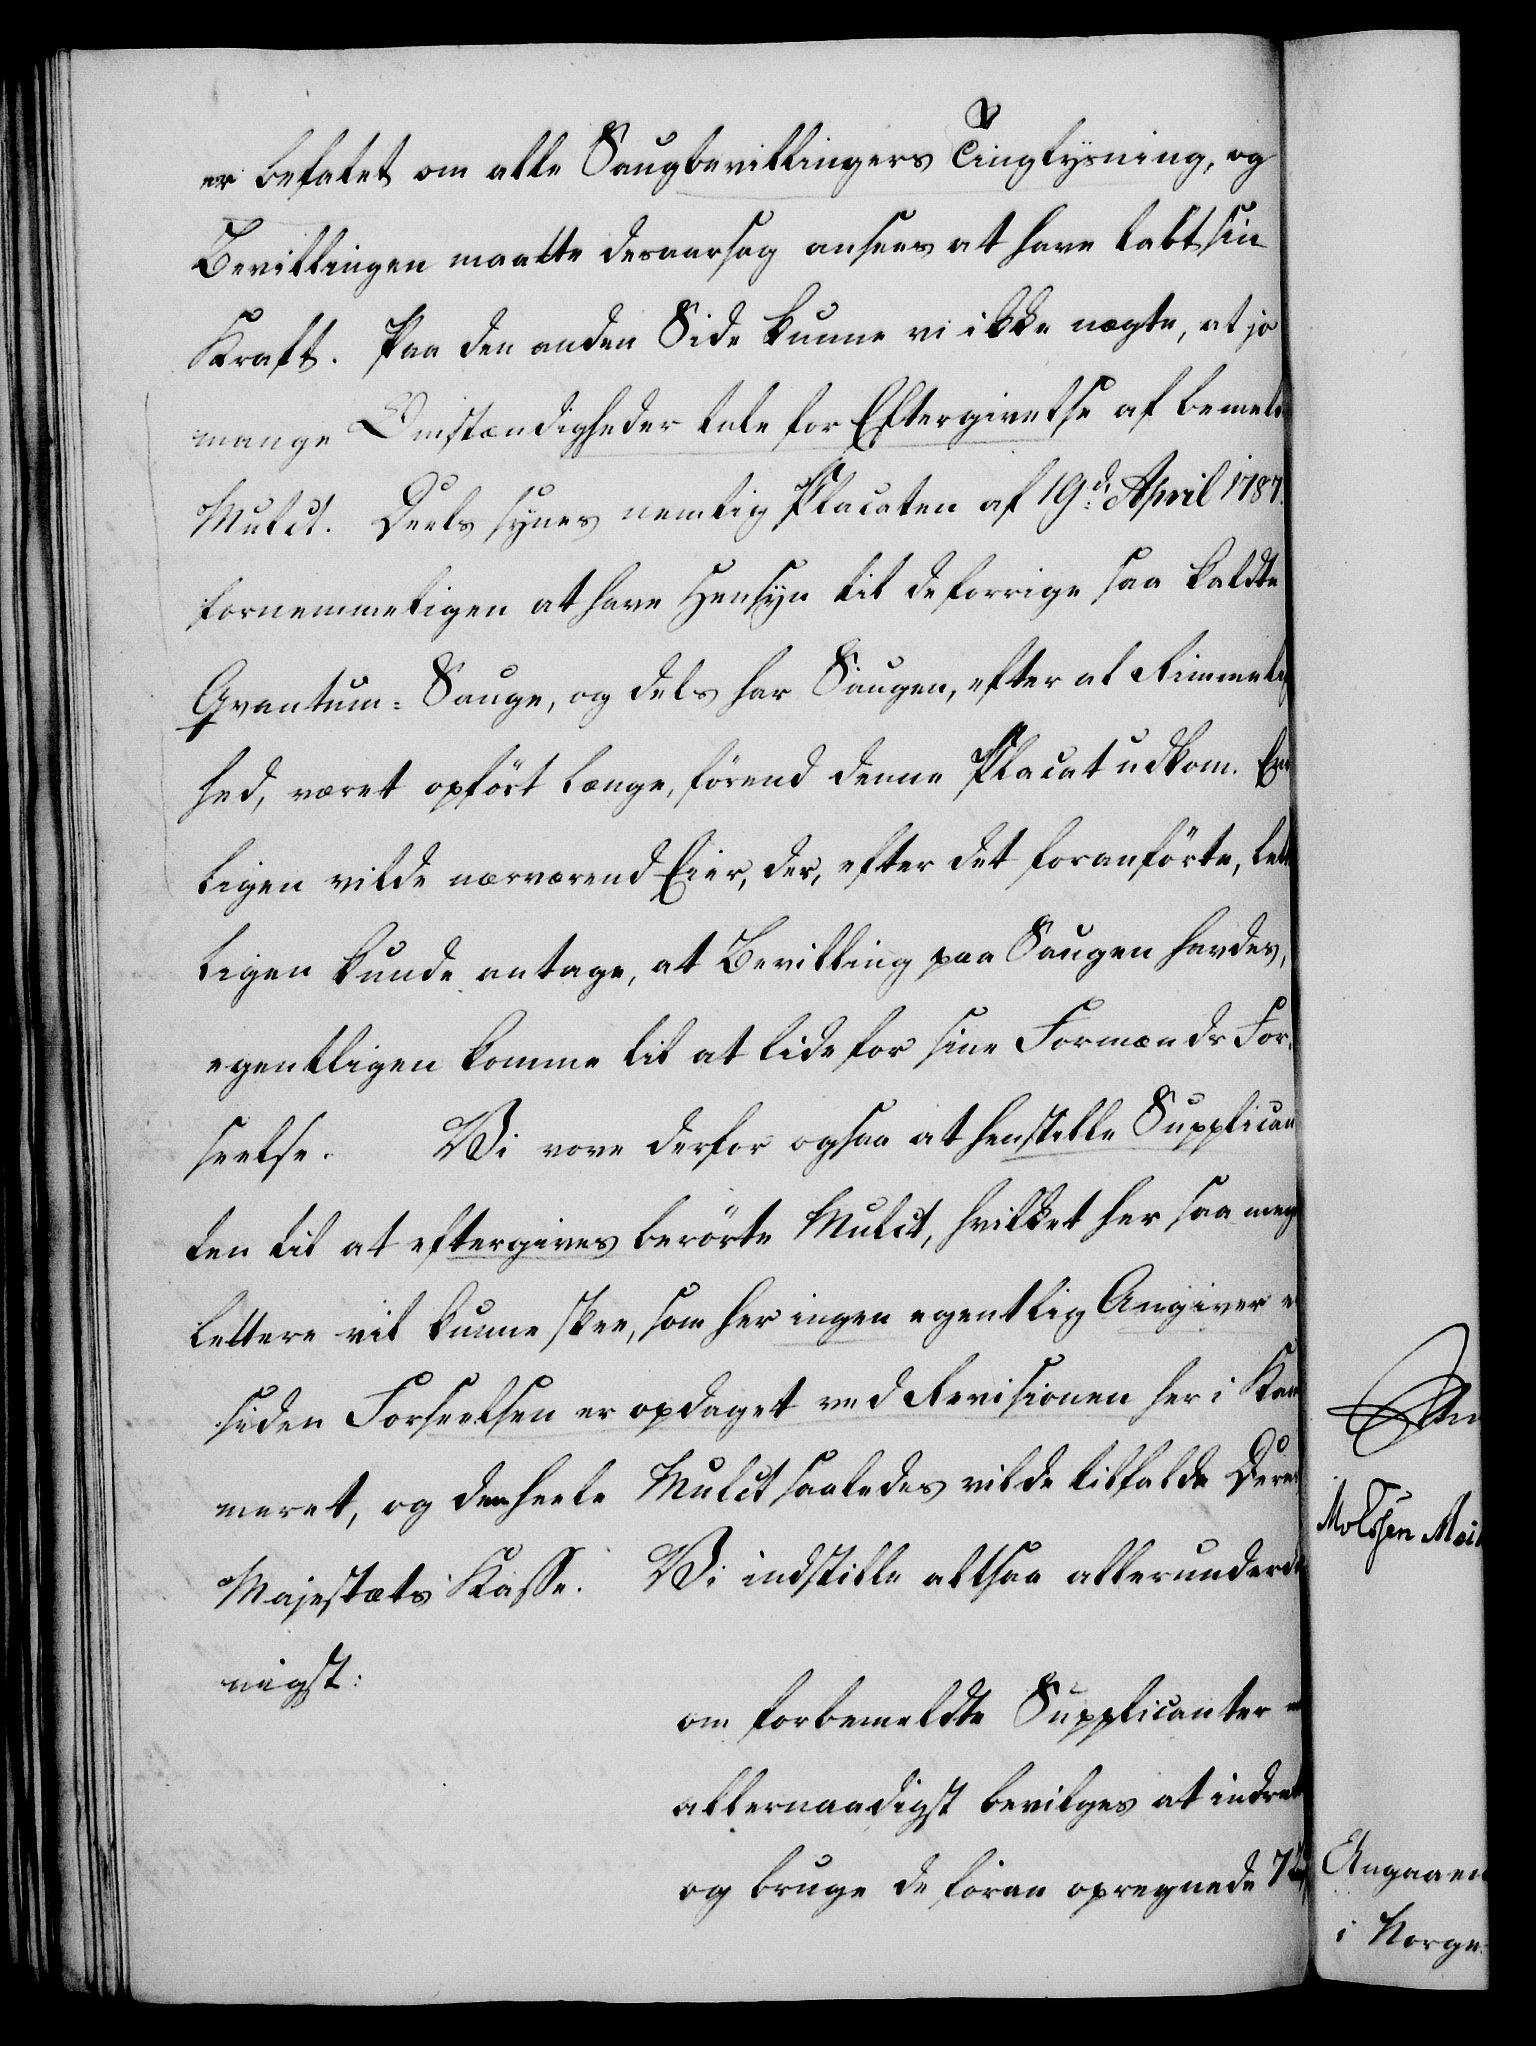 er befalet om alle Saugbevillingers Tinglysning, og
Bevillingen maatte desaarsag ansees at have tabt sin
Kraft. Paa den anden Side kunne vi ikke nægte, at jo
mange Omstændigheder tale for Eftergivelse af bemeld
Mulct. Deels synes nemlig Placaten af 19d. April 1787.
fornemmeligen at have Hensyn til de forrige saa kaldte
Qvantum-Sauge, og dels har Saugen, efter al Rimmelig
hed, været opført længe, førend denne Placat udkom. En
ligen vilde nærværend Eier, der, efter det foranførte, let
ligen kunde antage, at Bevilling paa Saugen havdes,
egentligen komme til at lide for sine Formænds For-
seelse. Vi vove derfor ogsaa at henstille Supplican
ten til at eftergives berørte Mulct, hvilket her saa meg
lettere vil kunne skee, som her ingen egentlig Angiver e
siden Forseelsen er opdaget ved Revisionen her i Kam
meret, og den heele Mulct saaledes vilde tilfalde Deres
Majestæts Kasse. Vi indstille altsaa allerunderd
nigst:
om forbemeldte Supplicanter
allernaadigst bevilges at indret
og bruge de foran opregnede 7
Angaaen
i Norge